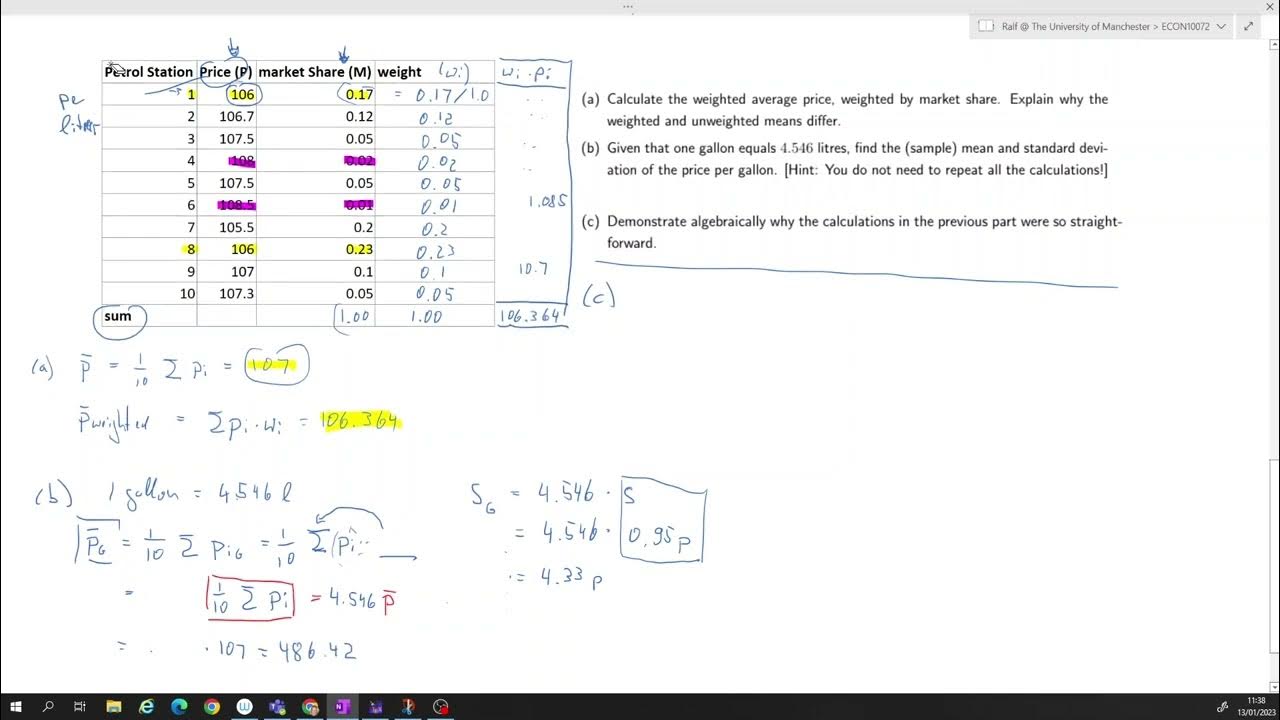 Ralf @ The University of Manchester > ECON10072
Petrol Station Price (P) market Share (M) weight (wi) wi · pi
1 106 0.17 = 0.17/1.0
2 106.7 0.12 0.12
3 107.5 0.05 0.05
4 108 0.02 0.02
5 107.5 0.05 0.05
6 108.5 0.01 0.01 1.085
7 105.5 0.2 0.2
8 106 0.23 0.23
9 107 0.1 0.1 10.7
10 107.3 0.05 0.05
sum 1.00 1.00 106.364
(a) Calculate the weighted average price, weighted by market share. Explain why the
weighted and unweighted means differ.
(b) Given that one gallon equals 4.546 litres, find the (sample) mean and standard devi-
ation of the price per gallon. [Hint: You do not need to repeat all the calculations!]
(c) Demonstrate algebraically why the calculations in the previous part were so straight-
forward.
(c)
(a) p̄ = 1/10 Σ pi = 107
p̄ weighted = Σ pi · wi = 106.364
(b) 1 gallon = 4.546 l
p̄G = 1/10 Σ piG = 1/10 Σ (pi
= 1/10 Σ pi = 4.546 p̄
= · 107 = 486.42
SG = 4.546 · S
= 4.546 · 0.95p
= 4.33 p
11:38
13/01/2023